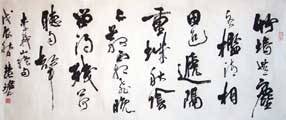 竹塢無塵
水檻清相
思迢遞隔
重城秋陰
不散霜飛晚
留得殘荷
聽雨聲
李義山詩
戊辰秋